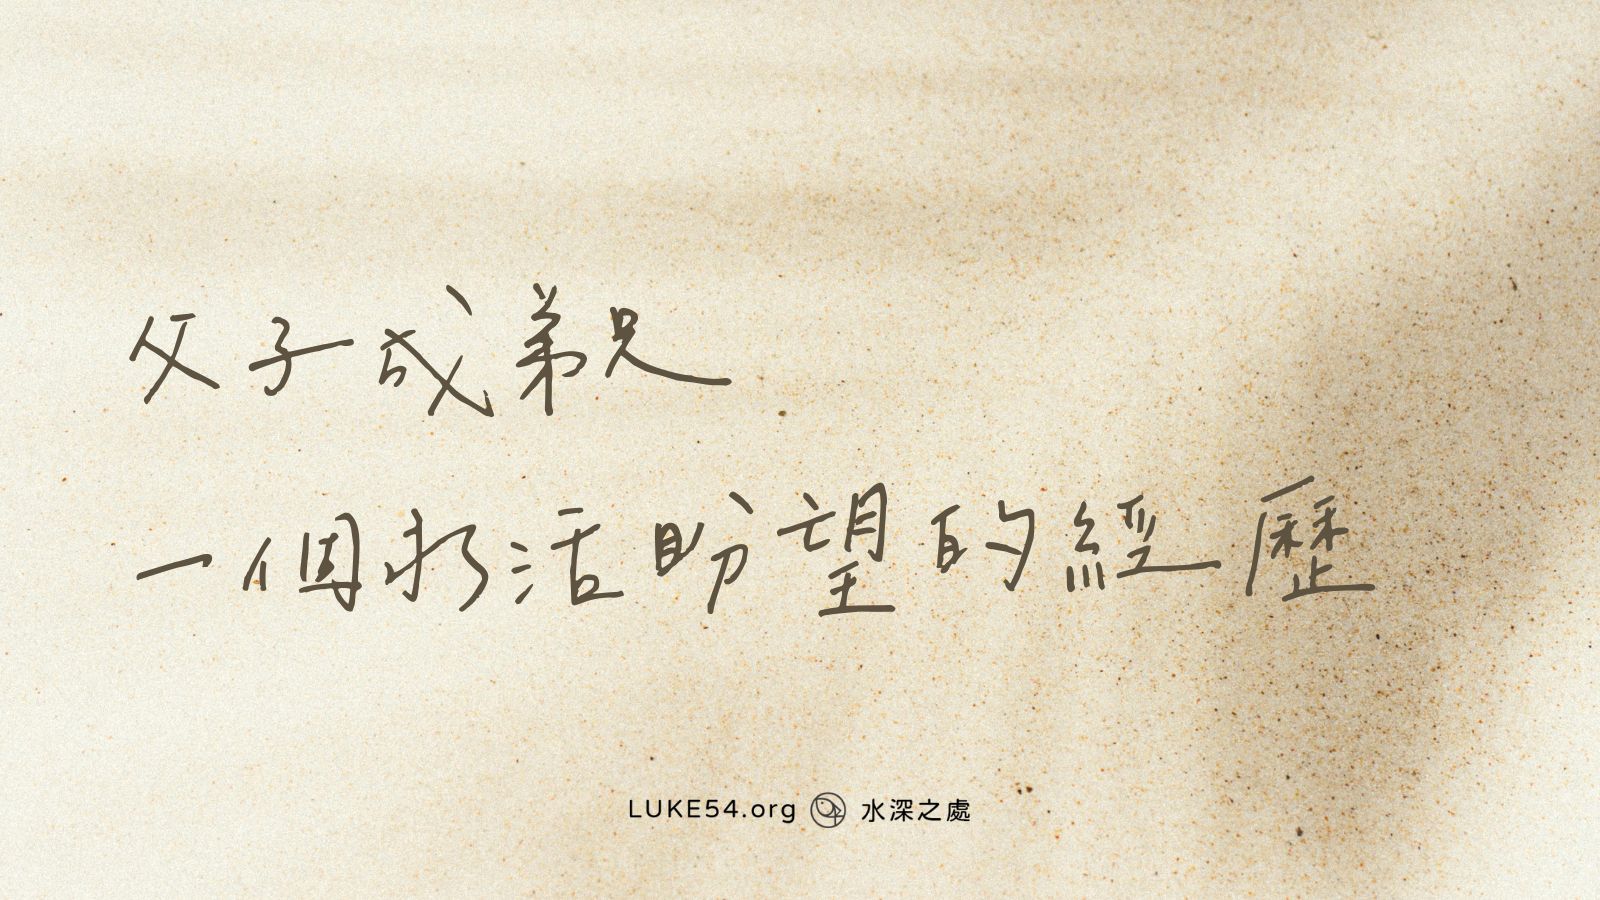 父子成弟兄
一個水活盼望的經歷
LUKE54.org 水深之處